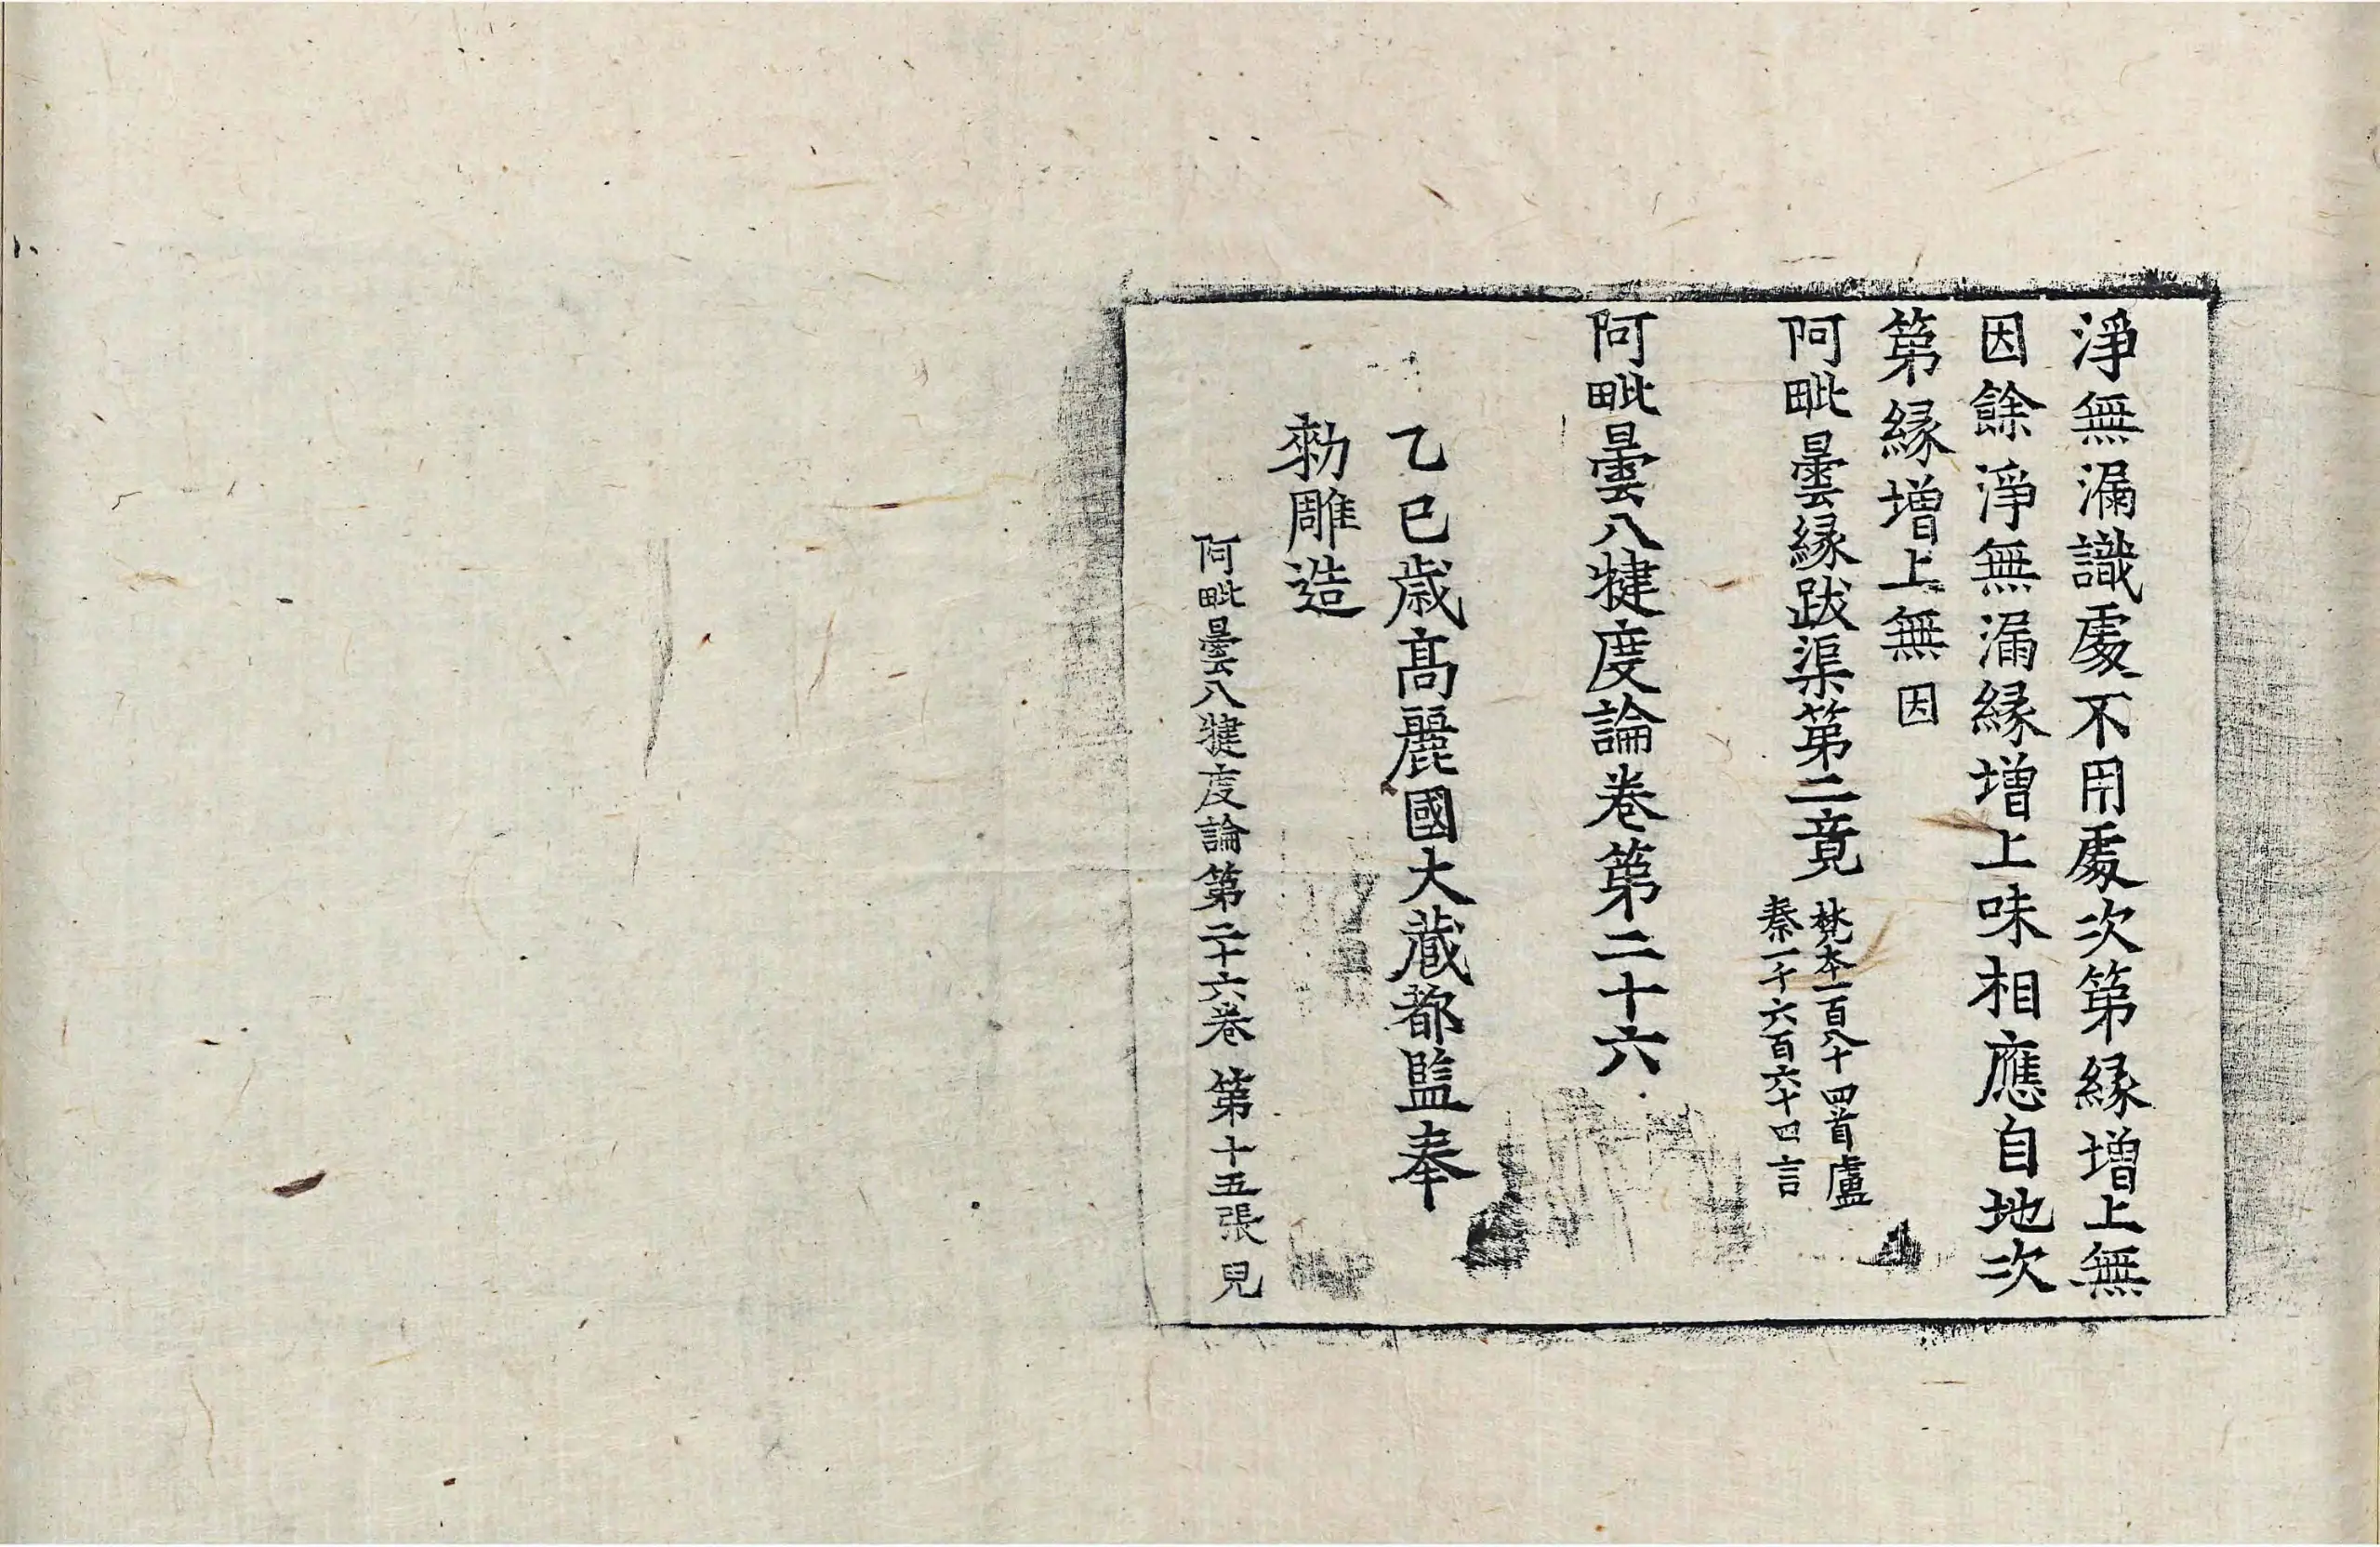 淨無漏識處不用處次第緣增上無
因餘淨無漏緣增上味相應自地次
第緣增上無因
阿毗曇緣跋渠第二竟
梵本一百八十四首盧
秦一千六百六十四言
阿毗曇八犍度論卷第二十六
乙巳歲高麗國大藏都監奉
勅雕造
阿毗曇八犍度論第二十六卷 第十五張 皃